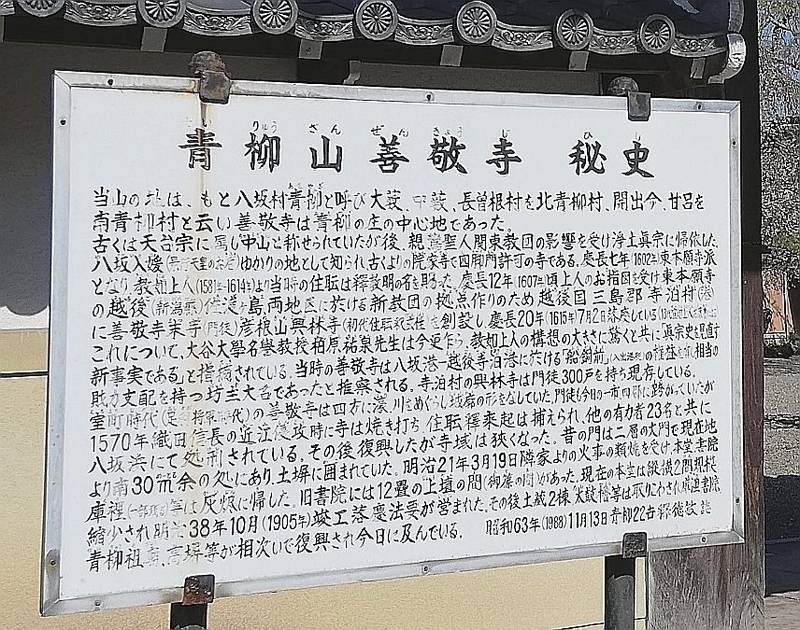 青柳山善敬寺 秘史
りゅう ざん ぜん きょう じ ひ し
当山の地は、もと八坂村青柳と呼び大薮、甲薮、長曽根村を北青柳村、開出今、甘呂を
南青柳村と云い善敬寺は青柳の庄の中心地であった。
古くは天台宗に属し中山と称せられていたが後、親鸞聖人関東教団の影響を受け浄土真宗に帰依した。
八坂入媛ゆかりの地として知られ古くよりの院家寺で四脚門許可の寺である。慶長七年(1602年)東本願寺派
となり教如上人(1581年〜1614年)より当時の住職は釋教明の名を賜った。慶長12年(1607年)頃上人のお指図を受け東本願寺
の越後(新潟県)佐渡ヶ島、両地区に於ける新教団の拠点作りのため越後国三島郡寺泊村
に善敬寺末寺彦根山興林寺を創設し、慶長20年(1615年)7月2日落慶している
これについて、大谷大學名誉教授柏原祐泉先生は今更乍ら、教如上人の構想の大きさに驚くと共に「真宗史を見直す
新事実である」と指摘されている。当時の善敬寺は八坂港―越後寺泊港に於ける「船銅前」の権益を有し、相当の
財力支配を持つ坊主大名であったと推察される。寺泊村の興林寺は門徒300戸を持ち現存している。
室町時代の善敬寺は四方に濠、川をめぐらし城廓の形をなしていた。門徒は今日の一市四郡に跨がっていたが
1570年織田信長の近江侵攻時に寺は焼き打ち住職釋来起は捕えられ、他の有力者23名と共に
八坂浜にて処刑されている。その後復興したが寺域は狭くなった。昔の門は二層の大門で現在地
より南30㎡余の処にあり、土塀に囲まれていた。明治21年3月19日隣家よりの火事の類焼を受け、本堂、書院
庫裡等は灰燼に帰した。旧書院には12畳の上壇の間があった。現在の本堂は縦横2間規模
縮少され明治38年10月(1905年)竣工落慶法要が営まれた。その後土蔵2棟、太鼓楼等は取りこわされ
青柳祖廟、高塀等が相次いで復興され今日に及んでいる。 昭和63年(1988)11月13日青柳22世